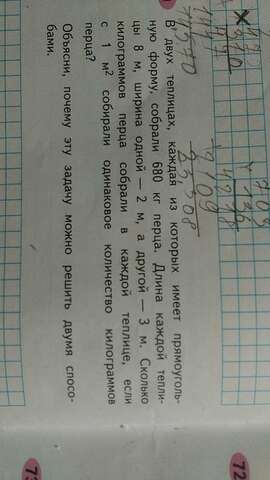 В двух теплицах, каждая из которых имеет прямоуголь-
ную форму, собрали 680 кг перца. Длина каждой тепли-
цы 8 м, ширина одной — 2 м, а другой — 3 м. Сколько
килограммов перца собрали в каждой теплице, если
с 1 м² собирали одинаковое количество килограммов
перца?
Объясни, почему эту задачу можно решить двумя спосо-
бами.
72
73